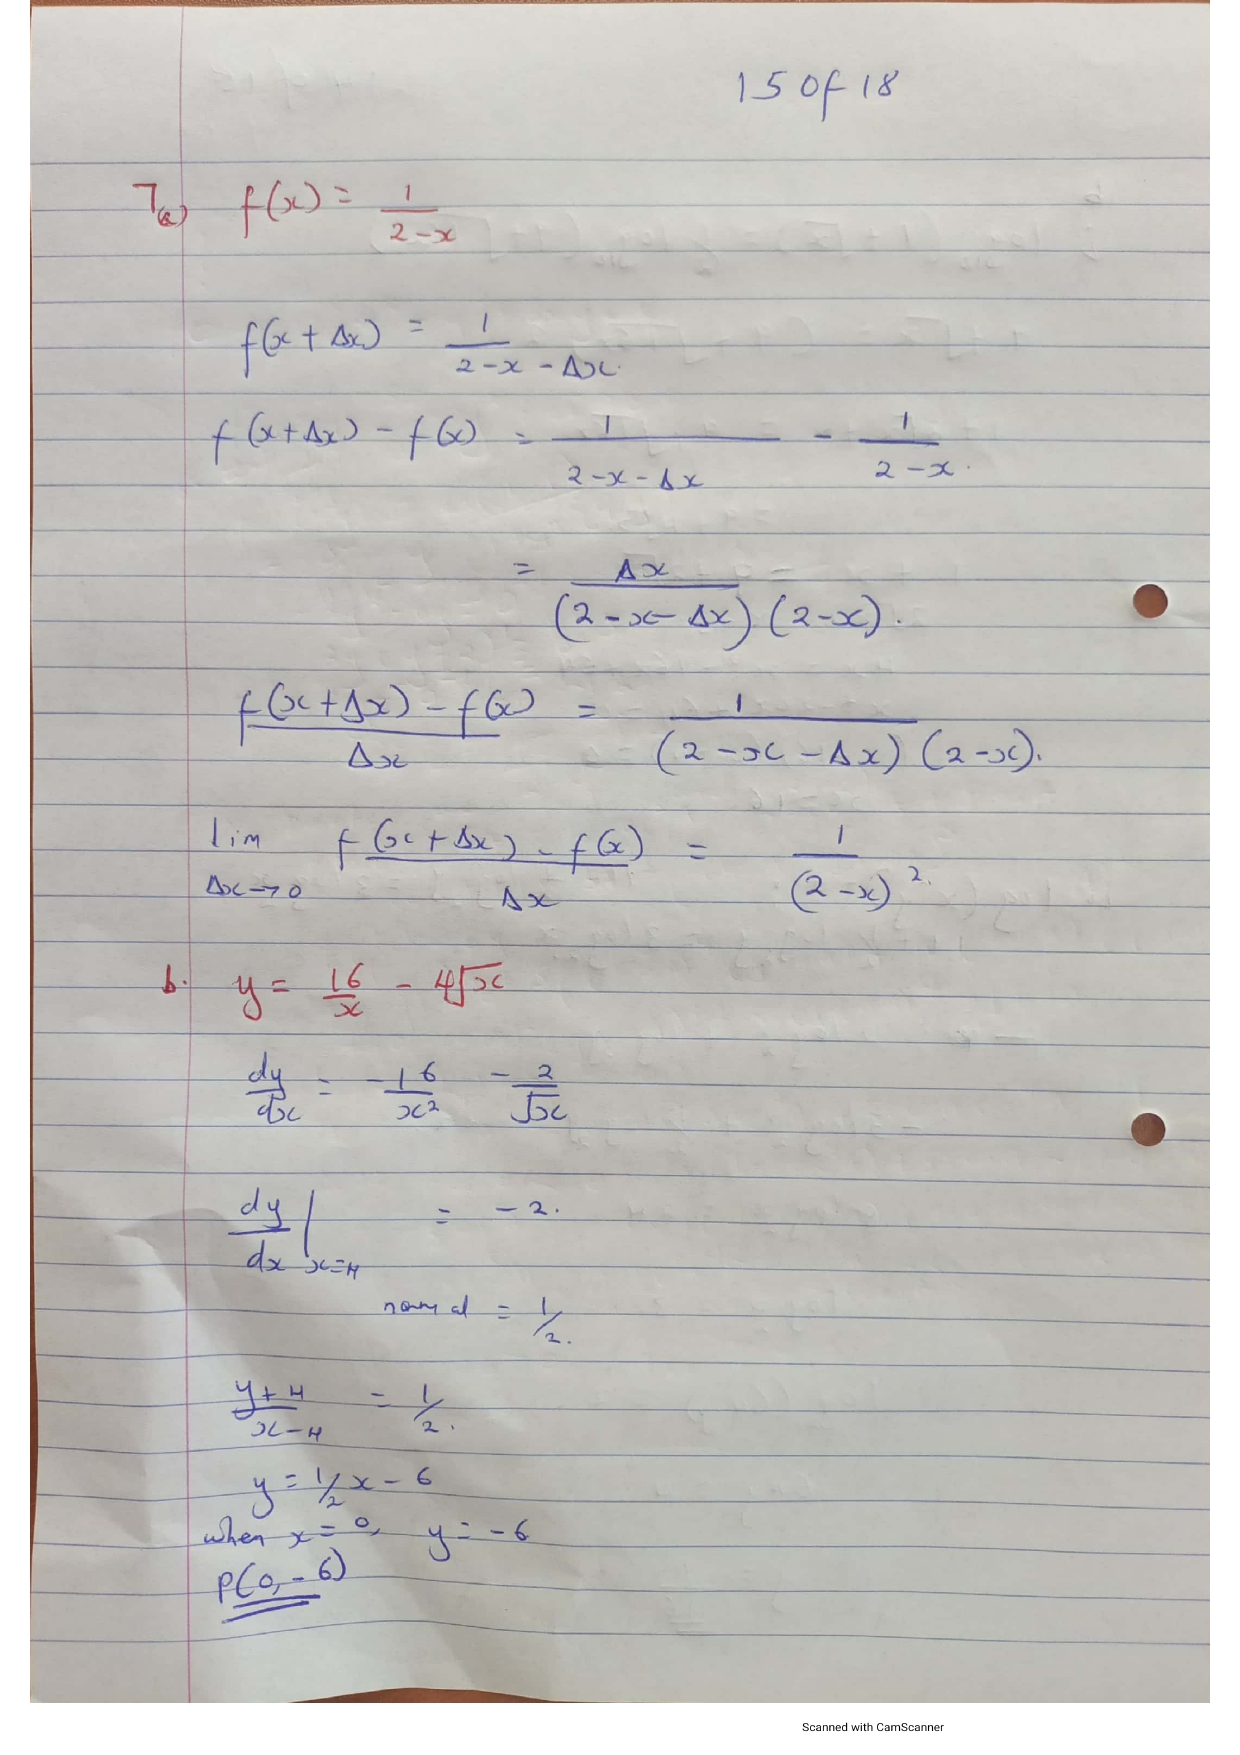 15 of 18
7(a) f(x) = 1/(2-x)
f(x + Δx) = 1/(2-x-Δx)
f(x+Δx) - f(x) = 1/(2-x-Δx) - 1/(2-x).
= Δx/((2-x-Δx)(2-x)).
(f(x+Δx) - f(x))/Δx = 1/((2-x-Δx)(2-x)).
lim Δx→0 (f(x+Δx) - f(x))/Δx = 1/(2-x)².
b. y = 16/x - 4√x
dy/dx = -16/x² - 2/√x
dy/dx | x=4 = -2.
normal = 1/2.
(y+4)/(x-4) = 1/2.
y = 1/2 x - 6
when x = 0, y = -6
P(0, -6)
Scanned with CamScanner